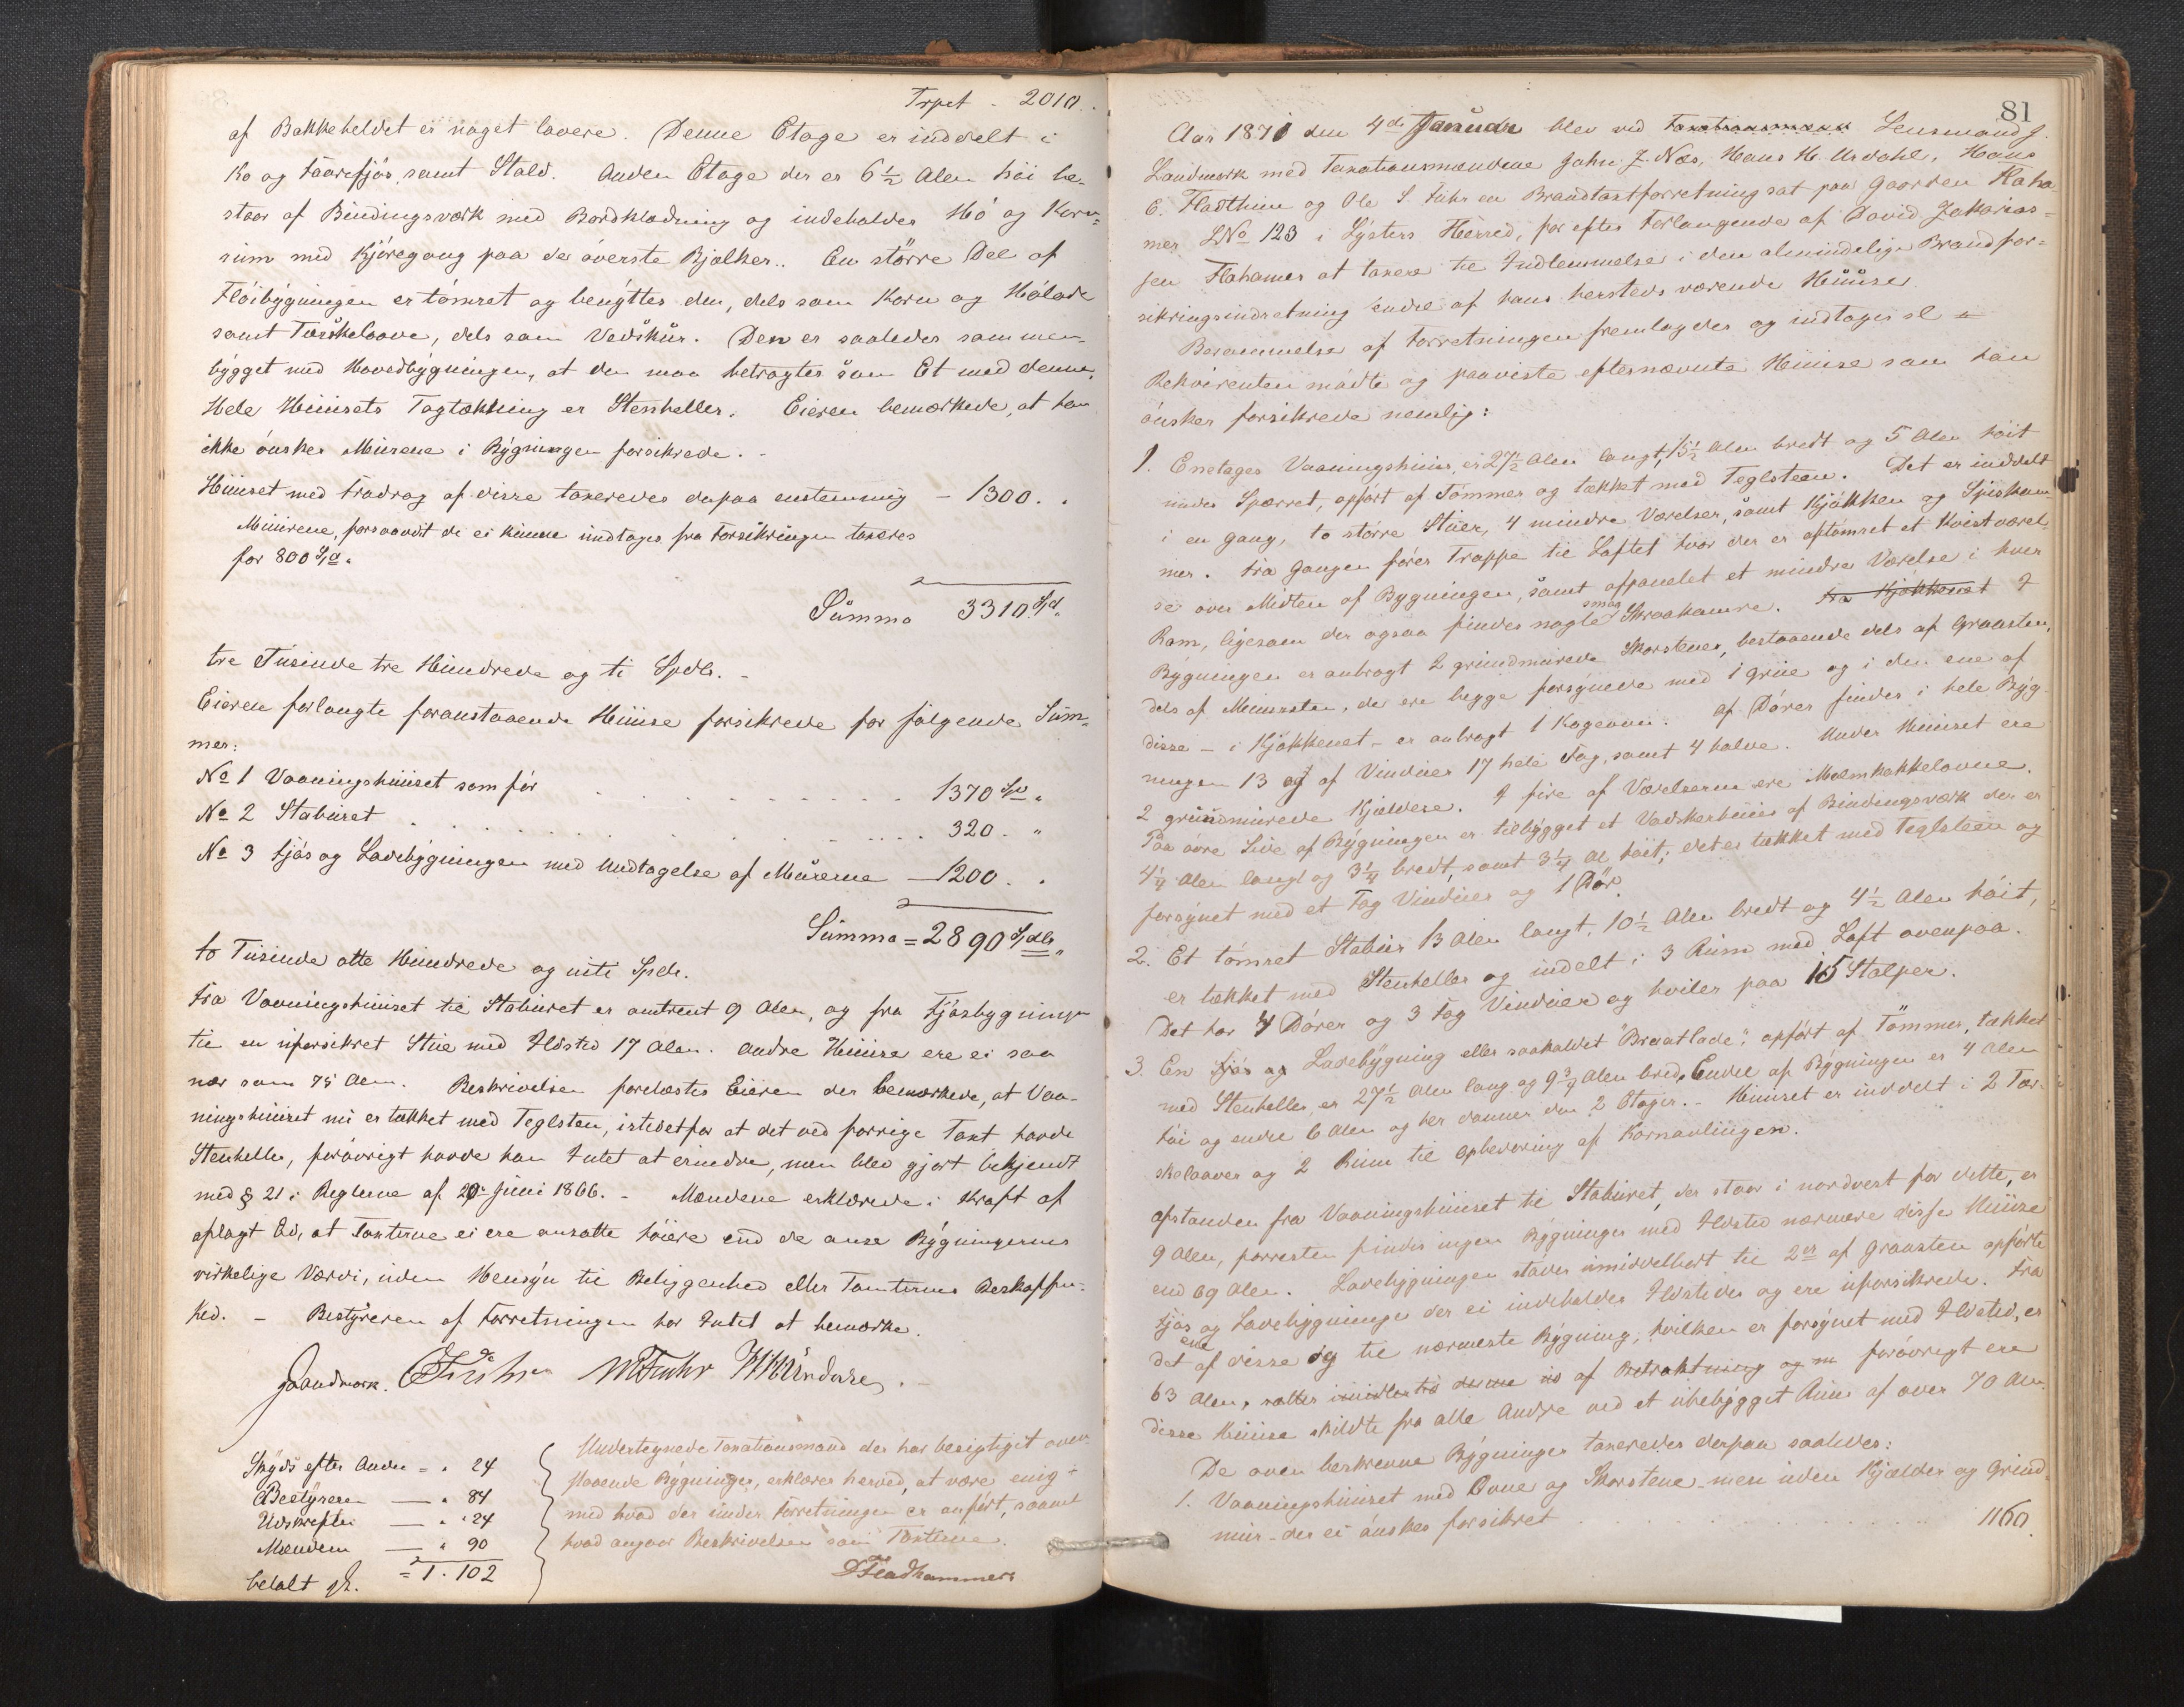 Trpct - 2010.
af Bakkeheldet er noget lavere. Denne Etage er inddelt i
Ko og Faarefjös, samt Stald. Anden Etage der er 6 1/2 Alen höi be-
staar af Bindingsværk med Bordklædning og indeholder Hö og Korn-
rum med Kjöregang paa de överste Bjælker.. En större Del af
Flöibygningen er tömret og benyttes den, dels som Korn og Hölade
samt Tærskeloave, dels som Vedskur. Den er saaledes sammen-
bygget med Hovedbygningen, at den maa betragtes som Et med denne,
Hele Huusets Tagtækning er Stenheller. Eieren bemærkede, at han
ikke önsker Murene i Bygningen forsikrede. -
Huuset med Fradrag af disse taxeredes derpaa enstemmig - 1300. "
Muurene, forsaavidt de ei kunne undtages fra Forsikringen taxeres
for 800 Spd.
Summa 3310 Spd.
tre Tusinde tre Hundrede og ti Spdlr. -
Eieren forlangte foranstaaende Huuse forsikrede for følgende Sum-
mer:
No 1 Vaaningshuuset som för . . . . . . 1370 Spd "
No 2 Staburet . . . . . . 320. "
No 3 Fjös og Ladebygningen med Undtagelse af Murene - 1200. "
Summa = 2890 Spdlr "
to Tusinde otte Hundrede og niti Spdlr.
Fra Vaaningshuuset til Staburet er omtrent 9 Alen, og fra Fjösbygningen
til en uforsikret Stue med Ildsted 17 Alen. Andre Huuse ere ei saa
nær som 75 Alen. Beskrivelsen forelæstes Eieren der bemærkede, at Vaa-
ningshuuset nu er tækket med Teglsten, istedetfor at det ved forrige Taxt havde
Stenheller, forövrigt havde han Intet at erindre, men blev gjort bekjendt
med § 21 i Reglerne af 20 Juni 1866. - Mændene erklærede i Kraft af
aflagt Ed, at Taxterne ei ere ansatte höiere end de anse Bygningernes
virkelige Værdi, uden Hensyn til Beliggenhed eller Tomternes Beskaffen-
hed. - Bestyreren af Forretningen har Intet at bemærke.
JLandmark.
Skyds efter Anden = " 24
Bestyreren — " 84
Udskriften — " 24
Mændene — " 90
= 1 . 102
betalt
Undertegnede Taxationsmand der har besigtiget oven
staaende Bygninger, erklærer herved, at være enig
med hvad der under Forretningen er anfört, saavel
hvad angaar Beskrivelsen som Taxterne.
DFladhammer
81
Aar 1871 den 4de Januar blev ved Taxationsmænd Lensmand J.
Landmark med Taxationsmændene John J. Næs, Hans H. Urdahl, Hans
E. Fladthun og Ole S. Fuhr en Brandtaxtforretning sat paa Gaarden Flaha-
mer LNo 123 i Lysters Herred, for efter Forlangende af David Zakarias-
sen Flahamer at taxere til Indlemmelse i den almindelige Brandfor-
sikringsindretning endel af hans hersteds værende Huuse.
Berammelse af Forretningen fremlagdes og indtages sl
Rekvirenten mödte og paaviste efternævnte Huuse som han
önsker forsikrede nemlig:
1. Enetages Vaaningshuus, er 27 1/2 Alen langt, 15 1/2 Alen bredt og 5 Alen höit
under Spærret, opfört af Tömmer og tækket med Teglsteen. Det er inddelt
i en Gang, to större Stuer, 4 mindre Værelser, samt Kjökken og Spiskam-
mer. Fra Gangen förer Trappe til Loftet hvor der er aftömret et Kvistværel-
se over Midten af Bygningen, samt afpanelet et mindre Værelse i hver
Ram, ligesom der ogsaa findes nogle smaa Skraakamre. Fra Kjökkenet I
Bygningen er anbragt 2 grundmurede Skorstener, bestaaende dels af Graasten,
dels af Mursten, de ere begge forsynede med 1 Grue og i den ene af
disse - i Kjökkenet - er anbragt 1 Kogeovn. Af Dörer findes i hele Byg-
ningen 13 og af Vinduer 17 hele Fag, samt 4 halve. Under Huuset ere
2 grundmurede Kjeldere. I fire af Værelserne ere Malmkakkelovne.
Paa övre Side af Bygningen er tilbygget et Vadskerhuus af Bindingsværk der er
4 1/4 Alen langt og 3 1/4 bredt, samt 3 1/4 Al höit; det er tækket med Teglsteen og
forsynet med et Fag Vinduer og 1 Dör.
2. Et tömret Stabur 13 Alen langt, 10 1/2 Alen bredt og 4 1/2 Alen höit,
er tækket med Stenheller og indelt i 3 Rum med Loft ovenpaa.
Det har 4 Dörer og 3 Fag Vinduer og hviler paa 15 Stolper.
3. En Fjös og Ladebygning eller saakaldet "Braatlade": opfört af Tömmer, tækket
med Stenheller, er 27 1/2 Alen lang og 9 3/4 Alen bred. Endel af Bygningen er 4 Alen
höi og endel 6 Alen og her danner den 2 Etager. - Huuset er inddelt i 2 Tær-
skeloaver og 2 Rum til Opbevaring af Kornavlingen.
Afstanden fra Vaaningshuuset til Staburet, der staar i nordvest for dette, er
9 Alen, forresten findes ingen Bygninger med Ildsted nærmere disse Huuse
end 69 Alen. Ladebygningen stöder umiddelbart til 2de af Graasten opförte
Fjös og Ladebygninger der ei indeholder Ildsteder og ere uforsikrede. Fra
det ene af disse og til nærmeste Bygning, hvilken er forsynet med Ildsted, er
63 Alen, sættes imidlertid denne af Betraktning og forövrigt ere
disse Huuse skildte fra alle Andre ved et ubebygget Rum af over 70 Alen.
De oven beskrevne Bygninger taxeredes derpaa saaledes:
1. Vaaningshuuset med Ovne og Skorstene - men uden Kjelder og Grund-
mur - der ei önskes forsikret . . . . . . 1160.